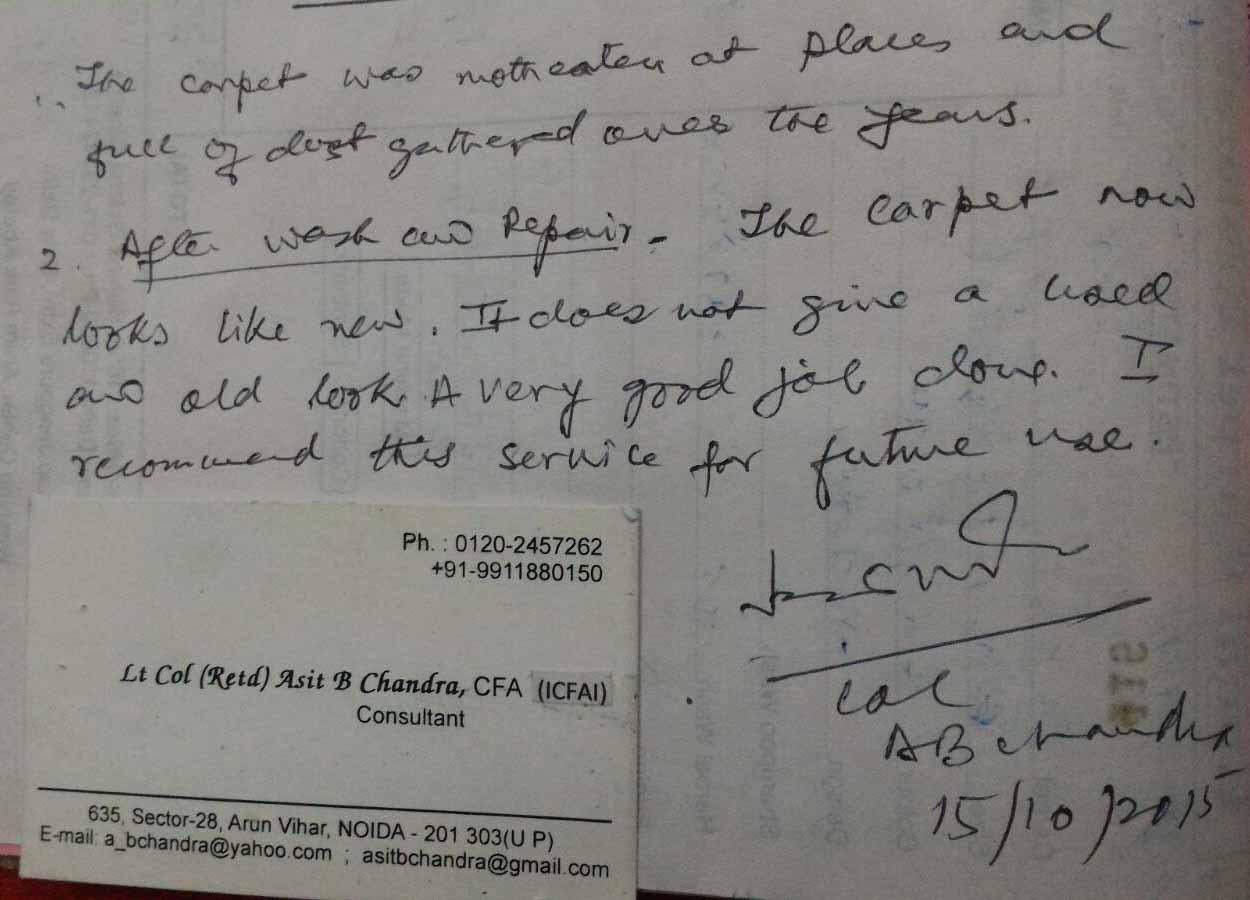 1. The carpet was motheaten at places and
full of dust gathered over the years.
2. After wash and Repair - The carpet now
looks like new. It does not give a used
and old look. A very good job done. I
recommend this service for future use.
Col
A B Chandra
15/10/2015
Ph. : 0120-2457262
+91-9911880150
Lt Col (Retd) Asit B Chandra, CFA (ICFAI)
Consultant
635, Sector-28, Arun Vihar, NOIDA - 201 303(U P)
E-mail: a_bchandra@yahoo.com ; asitbchandra@gmail.com